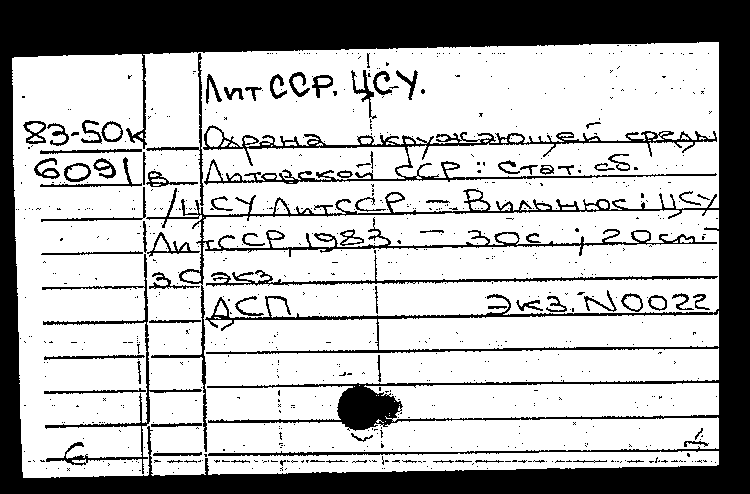 ЛитССР. ЦСУ.
83-50к Охрана окружающей среды
6091 в Литовской ССР : Стат. сб.
/ЦСУ ЛитССР. – Вильнюс : ЦСУ
ЛитССР, 1983. – 30с. ; 20см. –
30экз.
ДСП. Экз. N0022